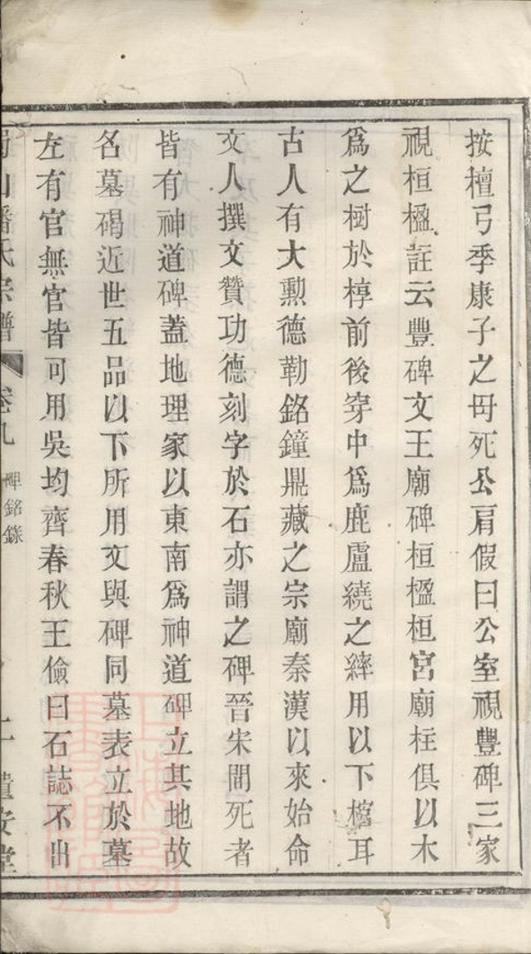 按檀弓季康子之母死公肩假曰公室視豐碑三家
視桓楹註云豐碑文王廟碑桓楹桓宮廟柱俱以木
爲之樹於椁前後穿中爲鹿盧繞之繂用以下棺耳
古人有大勲德勒銘鐘鼎藏之宗廟秦漢以來始命
文人撰文贊功德刻字於石亦謂之碑晉宋間死者
皆有神道碑蓋地理家以東南爲神道碑立其地故
名墓碣近世五品以下所用文與碑同墓表立於墓
左有官無官皆可用吳均齊春秋王儉曰石誌不出
山潘氏宗譜 卷九 碑銘錄 遺安堂